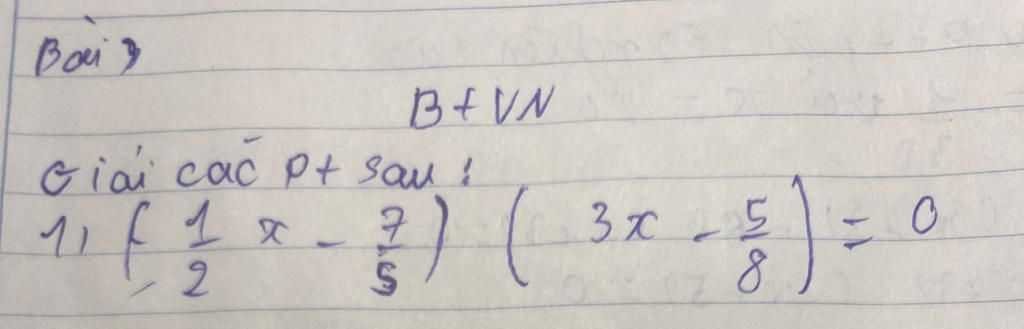 Bài 3
BtVN
Giải các pt sau:
1, (-1/2 x - 7/5) (3x - 5/8) = 0